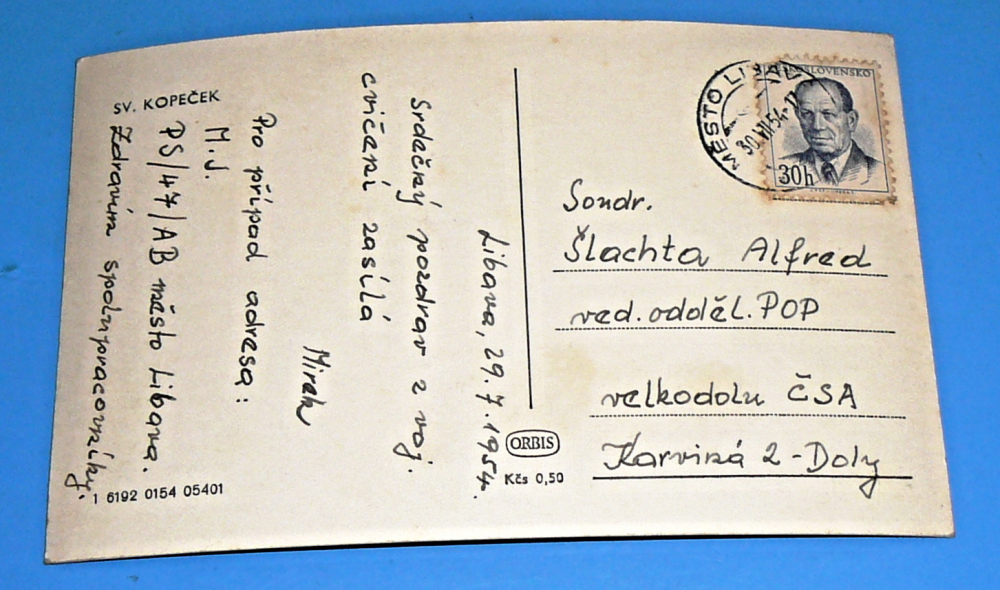 SV. KOPEČEK
Libava, 29.7.1954.
Srdečný pozdrav z voj.
cvičení zasílá
Mirek
Pro případ adresa:
M.J.
PS/47/AB město Libava.
Zdravím spolupracovníky.
1 6192 0154 05401
ORBIS
Kčs 0,50
ČESKOSLOVENSKO
30h
MĚSTO LIBAVÁ
30.VII.54-11
Soudr.
Šlachta Alfred
ved. odděl. POP
velkodolu ČSA
Karviná 2-Doly